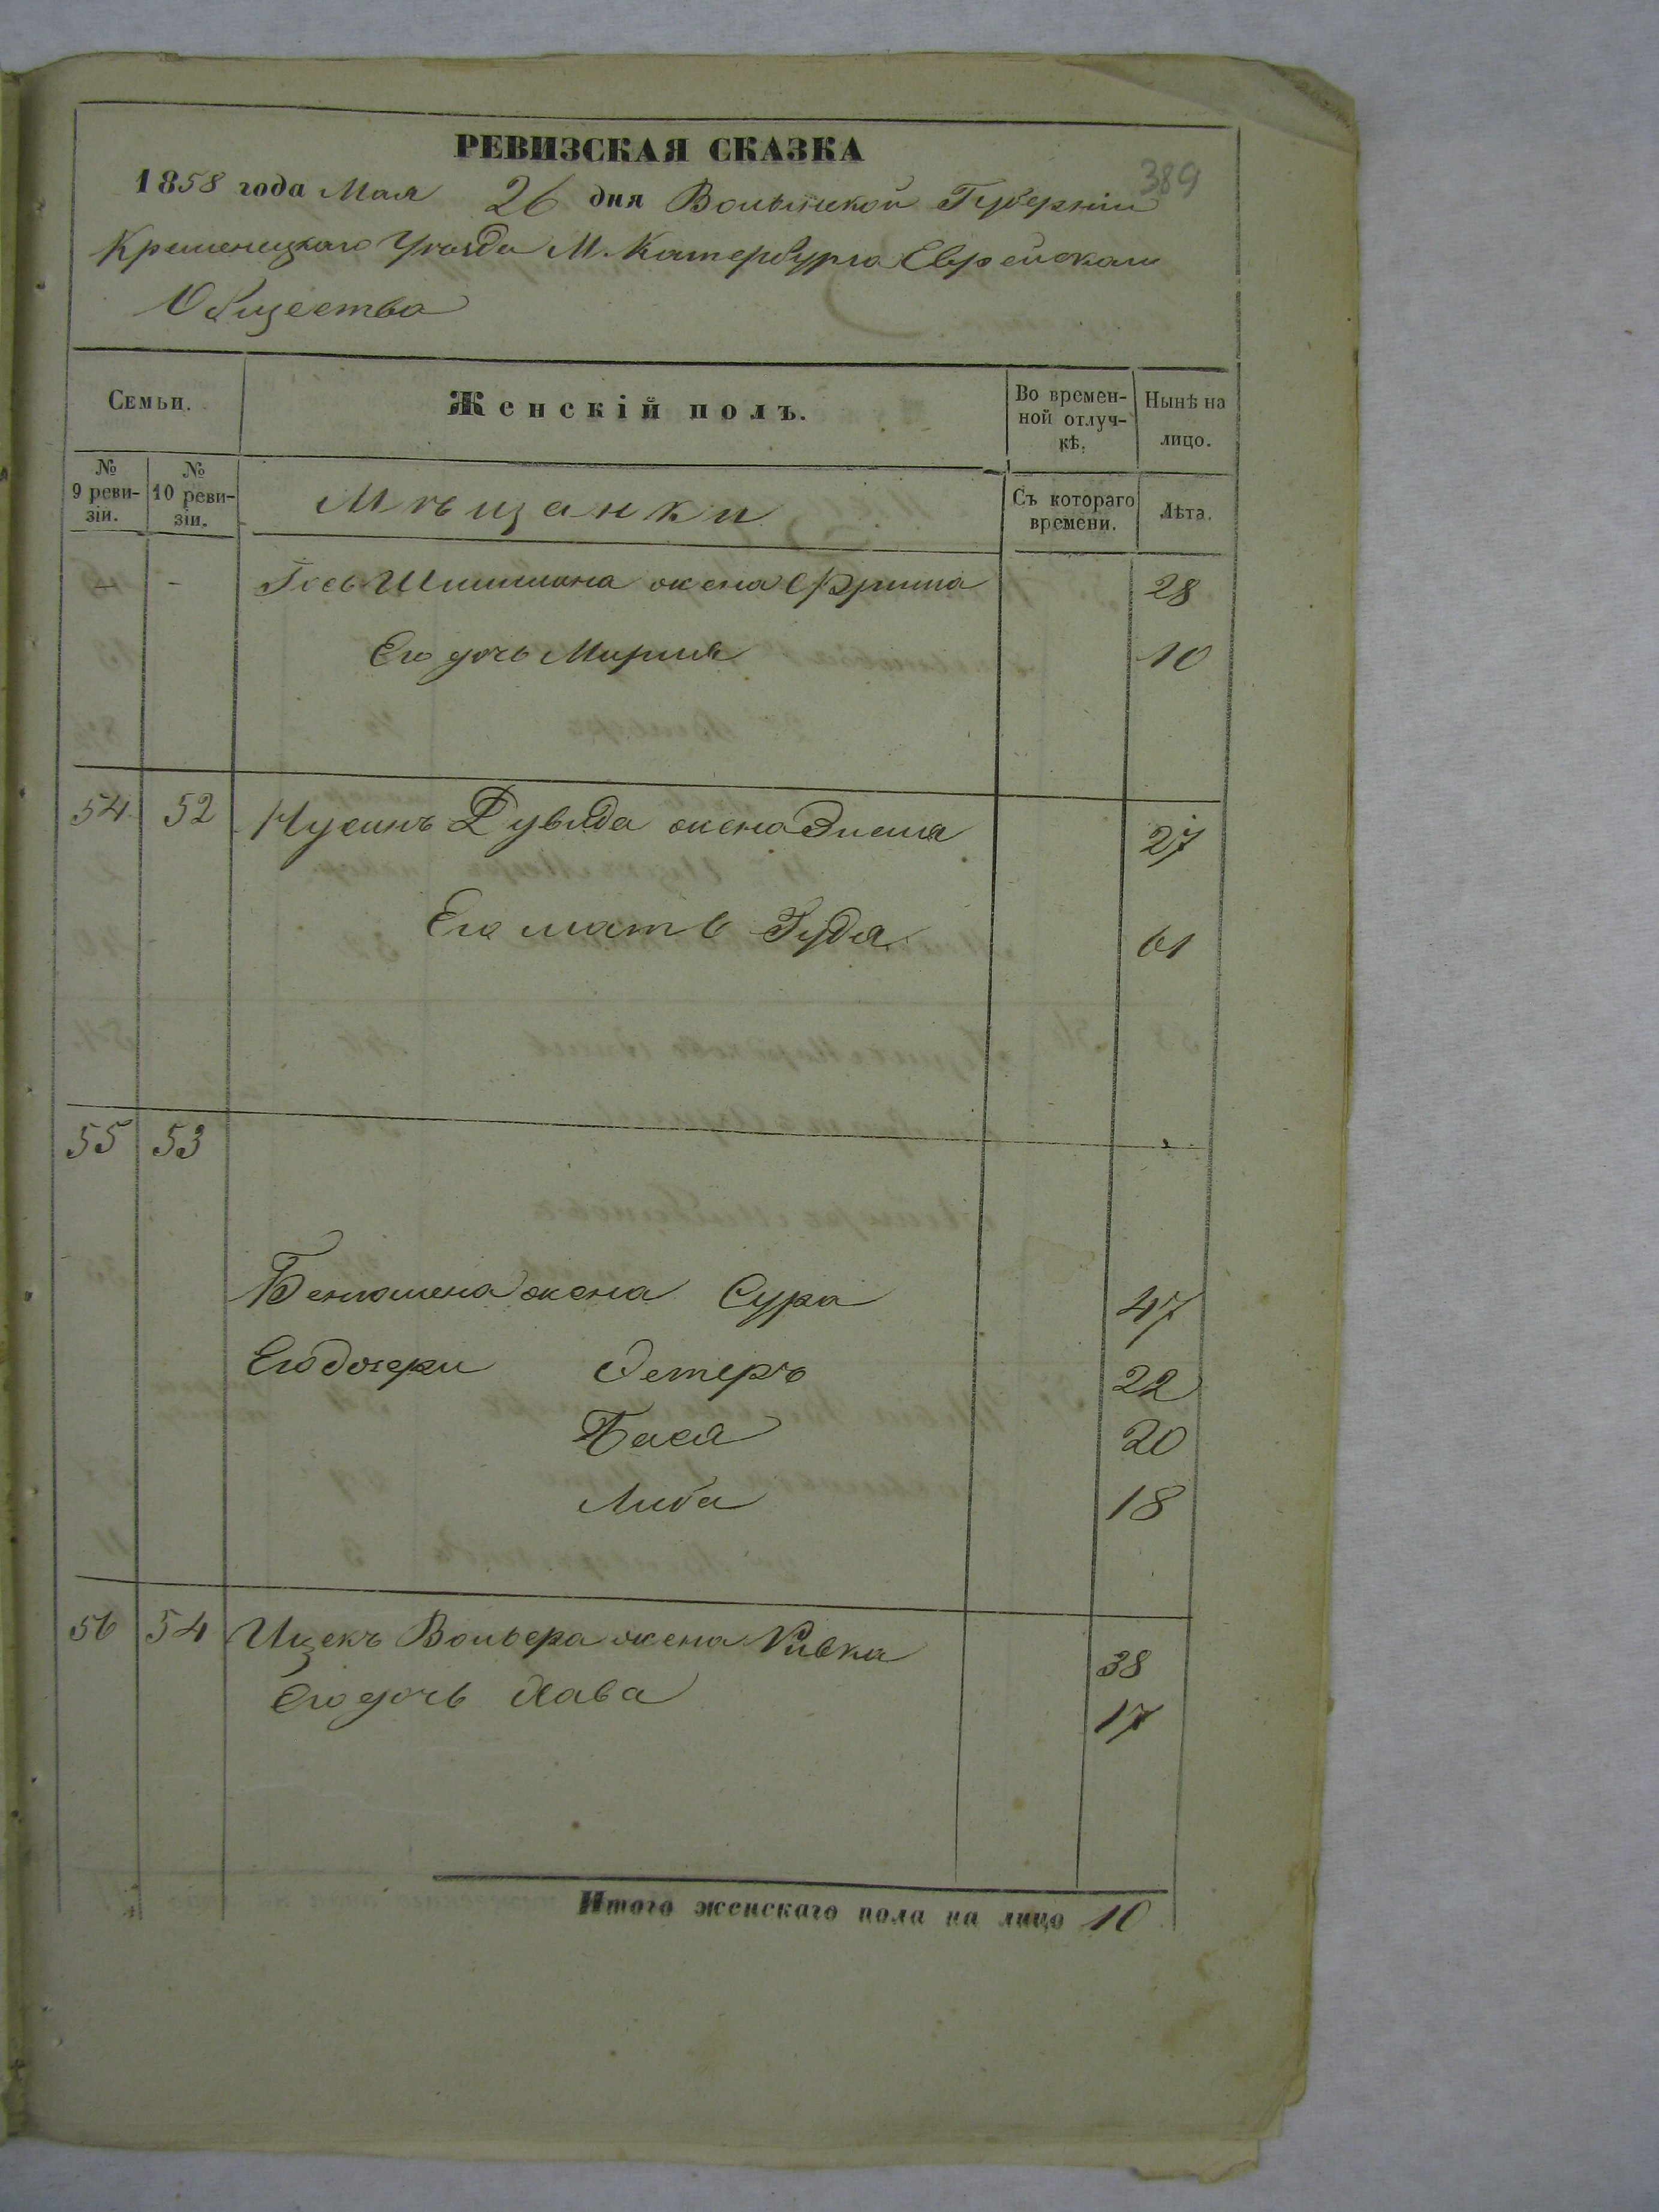 РЕВИЗСКАЯ СКАЗКА
389
1858 года Мая 26 дня Волынской Губерніи
Кременецкаго Уѣзда М. Катербурга Еврейскаго
Общества
Семьи.
Женскій полъ.
Во времен-
ной отлуч-
кѣ.
Нынѣ на
лицо.
№
9 реви-
зіи.
№
10 реви-
зіи.
Мѣщанки
Съ котораго
времени.
Лѣта.
- - Іось Шимшона жена Фрима 28
Его дочь Мирля 10
54 52 Нусинъ Дувида жена Энея 27
Его мать Гудя 61
55 53
Бенюмена жена Сура 47
Его дочери Эстеръ 22
Бася 20
Либа 18
56 54 Ицекъ Вольера жена Ривка 38
Его дочь Хава 17
Итого женскаго пола на лицо 10